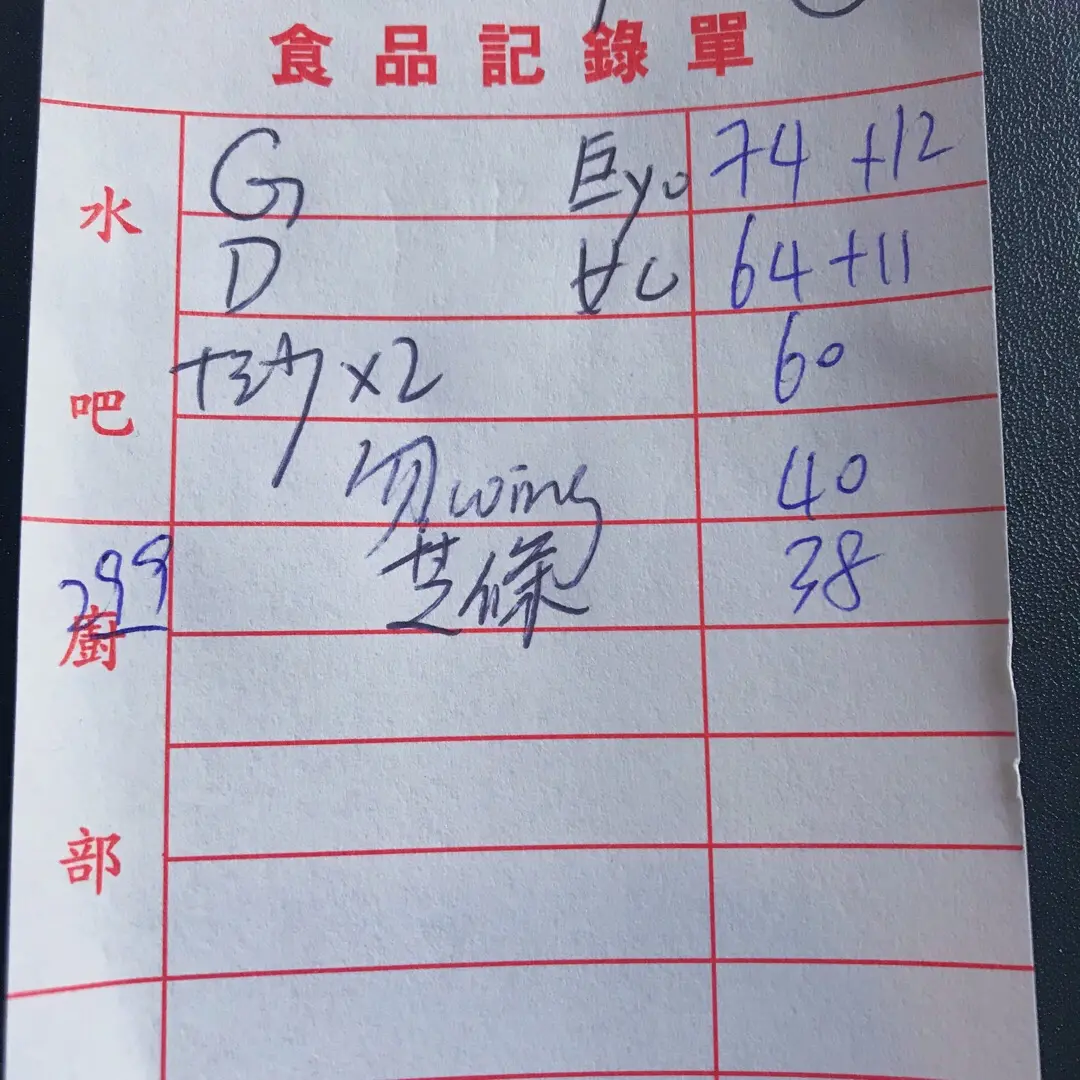 食品記錄單
水吧
G 巨yo 74 +12
D 甘C 64 +11
x2 60
wing 40
299
芝條 38
廚部